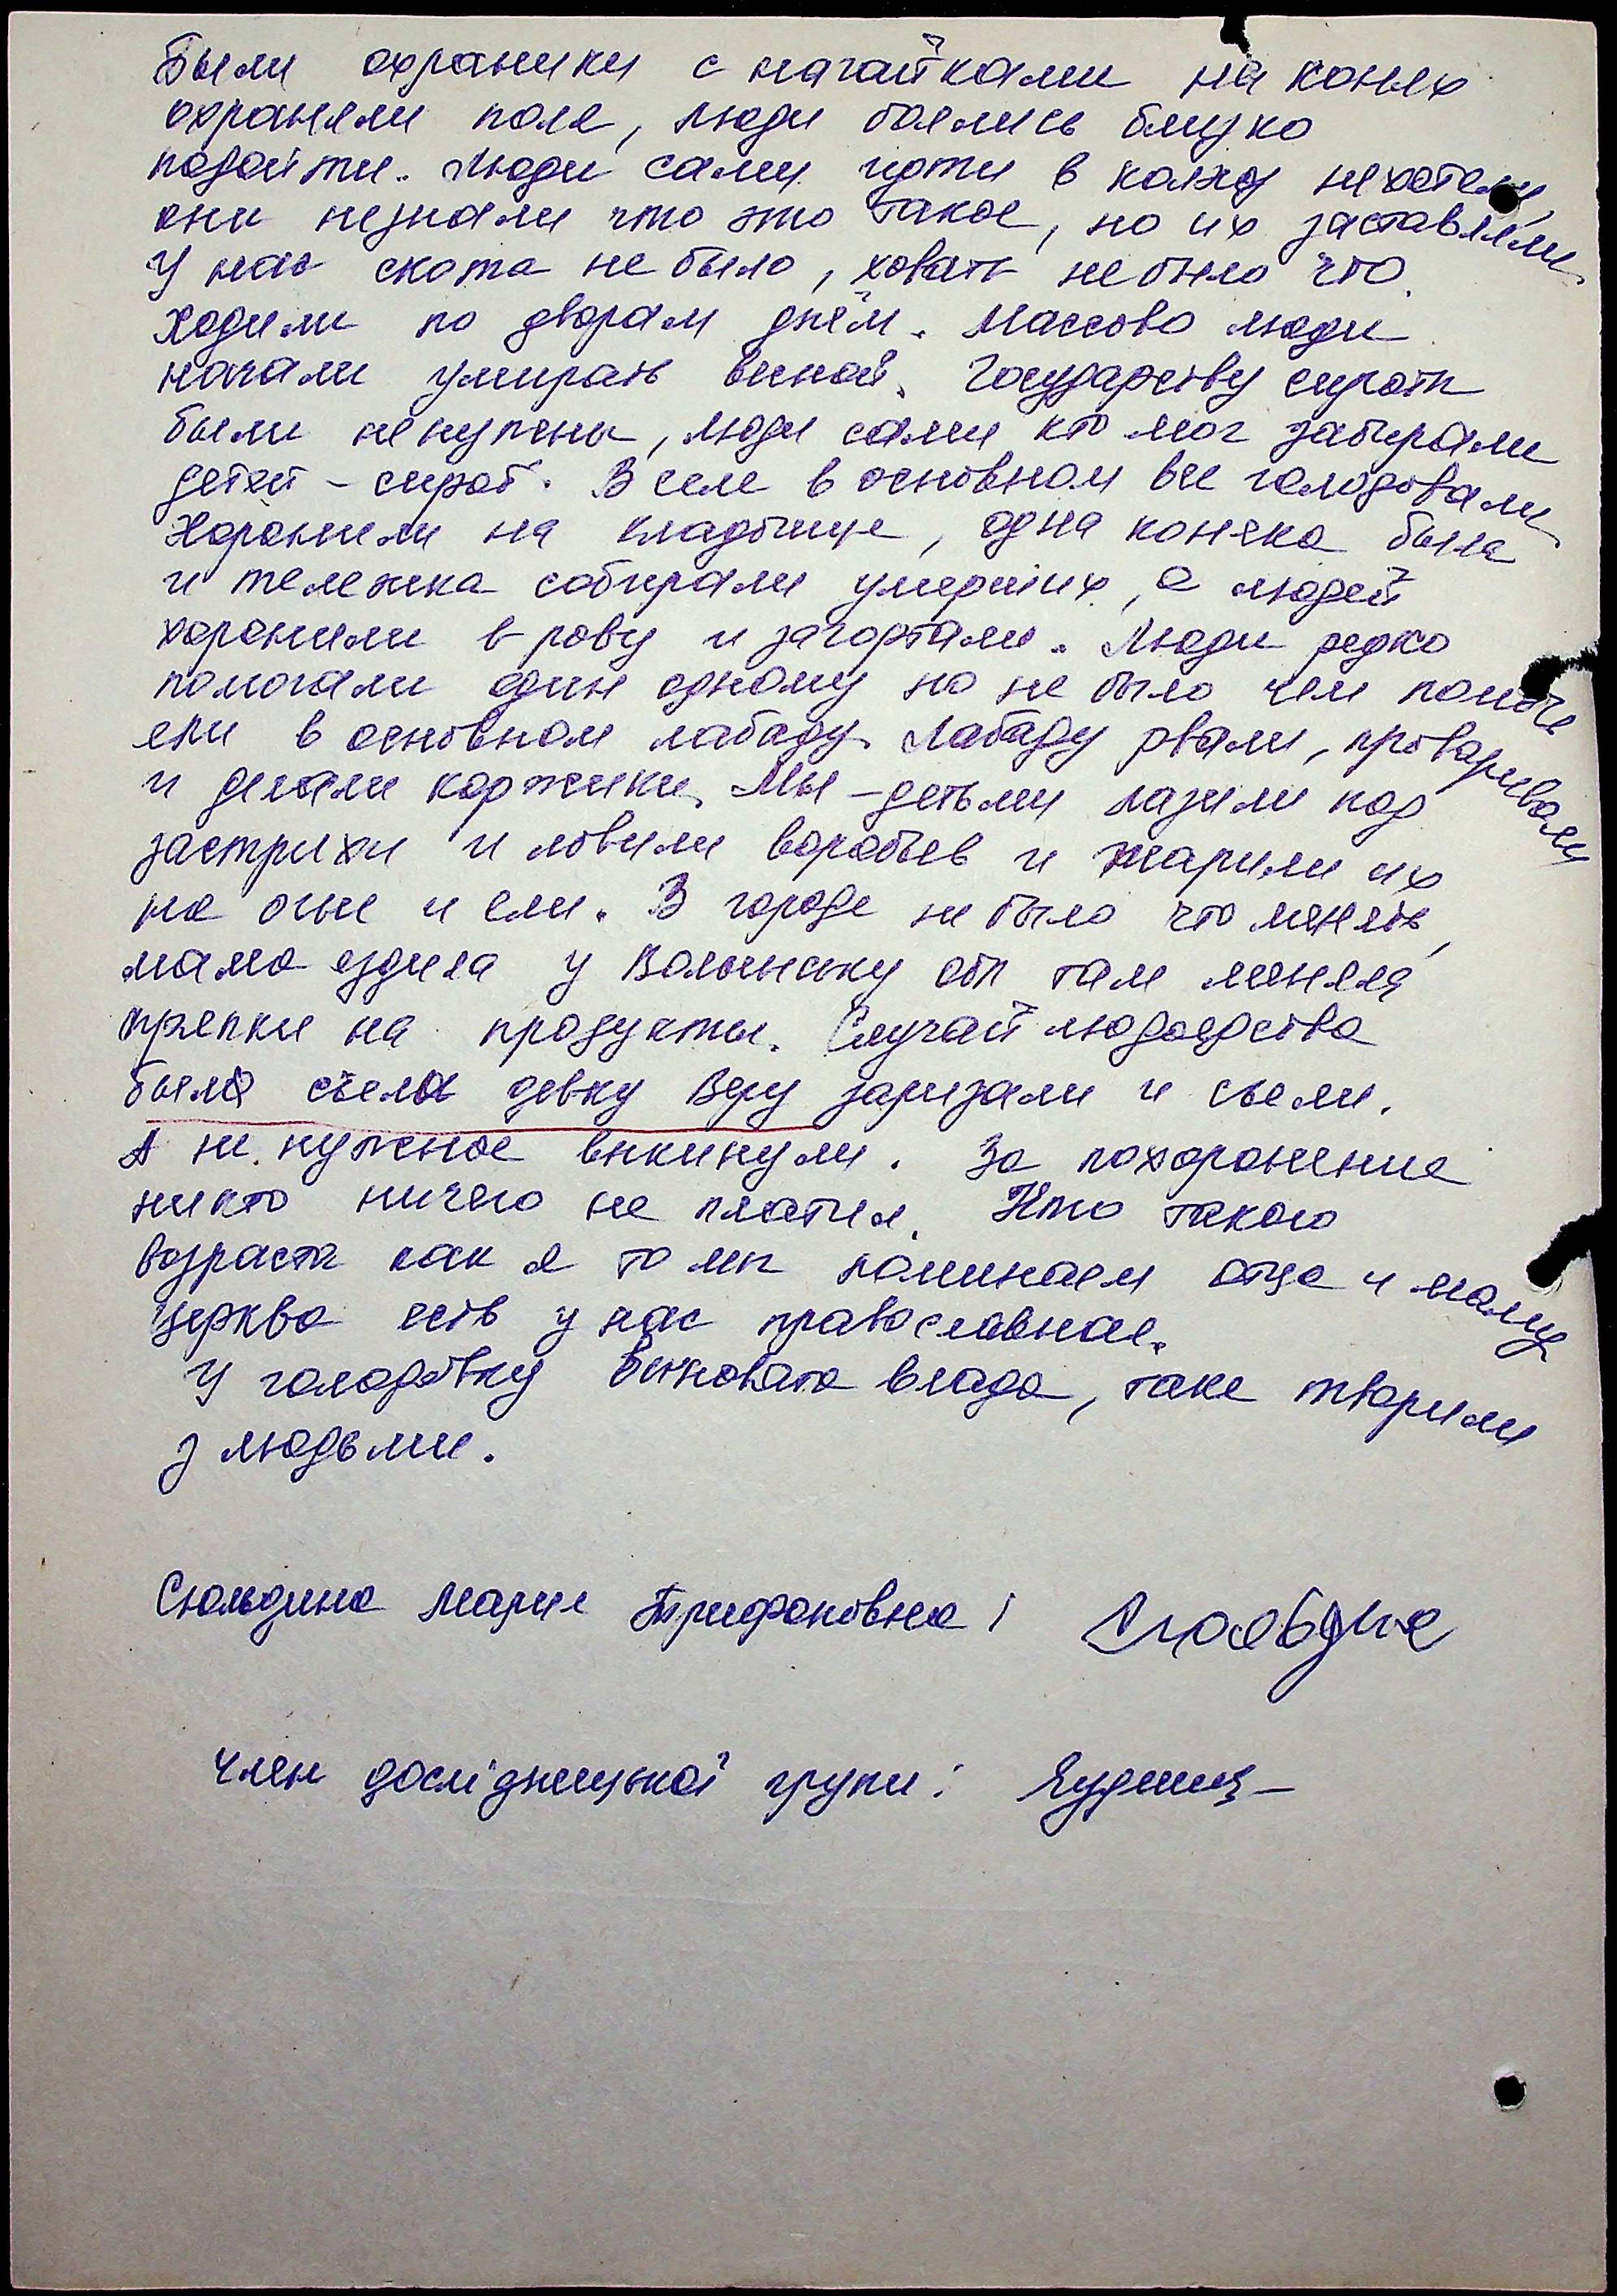 Были охраники с нагайками на конях
охраняли поля, люди боялись близко
подойти. Люди сами идти в колхоз нехотели,
они незнали что это такое, но их заставляли.
У нас скота не было, ховать небыло что.
Ходили по дворам днём. Массово люди
начали умирать висной. Государству сироты
были ненужены, люди сами кто мог забирали
детей - сирот. В селе в основном все голодовали
Хоронили на кладбище, одна коняка была
и тележка собирали умерших, а людей
хоронили в рову и загортали. Люди редко
помогали один одному но не было чем помочь
ели в основном лабаду. Лабаду рвали, проваривали
и делали коржики. Мы - детьми лазили под
застрихи и ловили воробьев и жарили их
на огне и ели. В городе не было что менять,
мама ездила у Волынську обл там меняла
тряпки на продукты. Случай людоедства
было съели девку Веру заризали и съели.
А не нужное выкинули. За похоронение
никто ничего не платил. Хто такого
возраста как я то мы поминаем отца и маму
церква есть у нас православная.
У голодовку виновата влада, таке творили
з людьми.
Сюльдина Мария Трифоновна: Сюльдина
Член дослідницької групи: